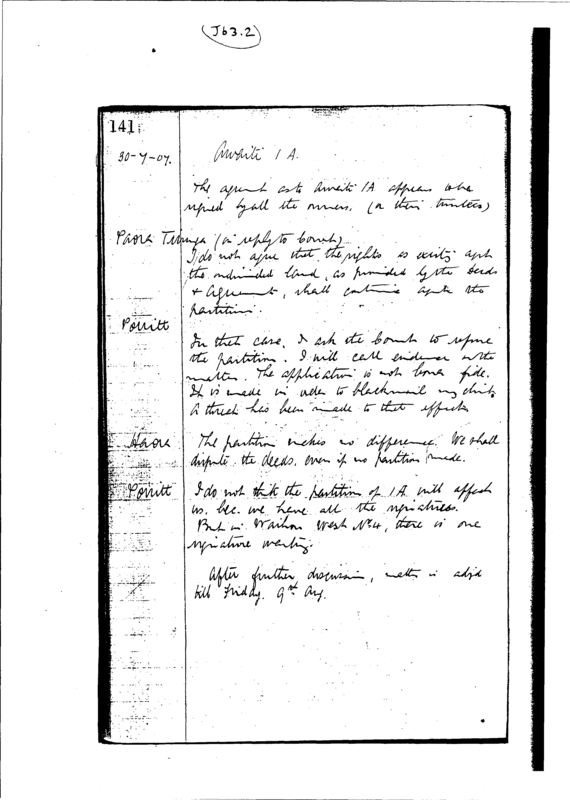 Jb3.2
141
30-7-07. Awaiti 1 A.
The agreemt as to Awaiti 1A appears to be
signed by all the owners, (or their trustees)
Paora (in reply to Court)
I do not agree that the rights as existg agst
the undivided land, as provided by the deeds
& Agreement, shall continue after the
partition.
Porritt
In that case, I ask the Court to refuse
the partition. I will call evidence in the
matter. The application is not bona fide.
It is made in order to blackmail my clients
A threat has been made to that effect.
Haora The partition makes no difference. We shall
dispute the deeds. even if no partition made.
Porritt I do not think the partition of 1A will affect
us. bec. we have all the signatures.
But in Waihou West No 4, there is one
signature wanting.
After further discussion, matter is adjd
till Friday. 9th Aug.